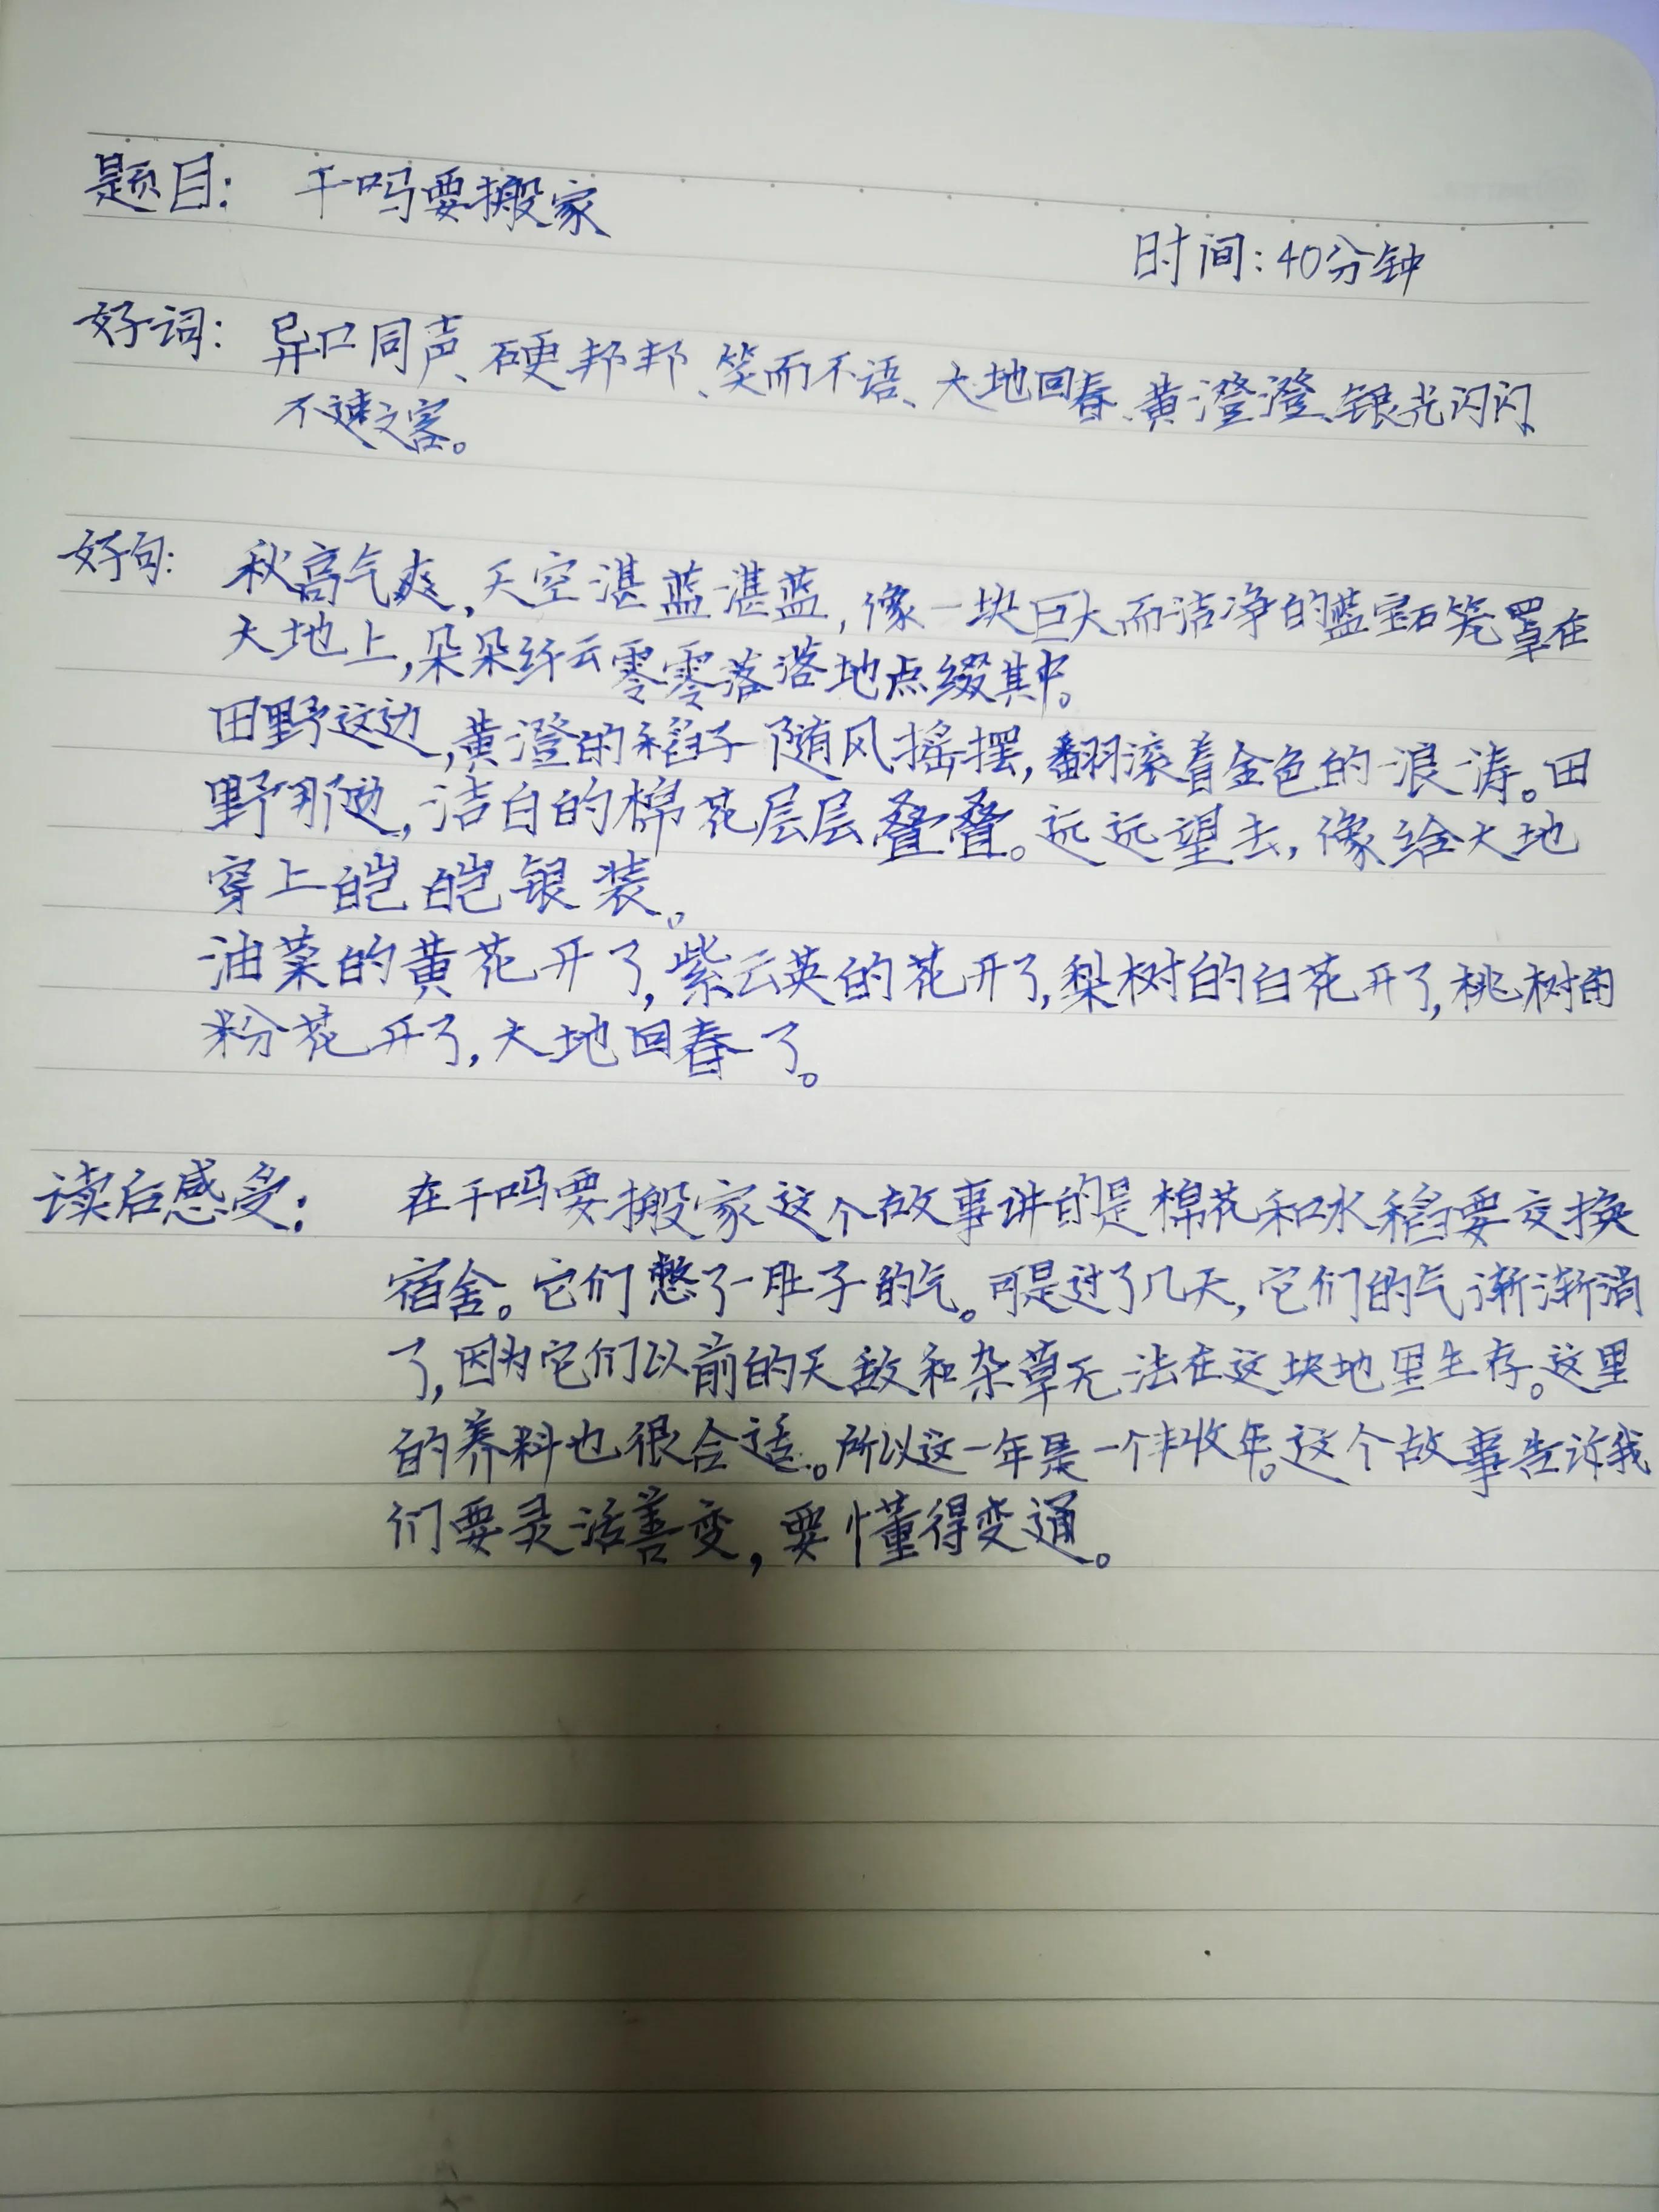 题目： 干吗要搬家
时间：40分钟
好词： 异口同声、硬邦邦、笑而不语、大地回春、黄澄澄、银光闪闪、
不速之客。
好句： 秋高气爽，天空湛蓝湛蓝，像一块巨大而洁净的蓝宝石笼罩在
大地上，朵朵纤云零零落落地点缀其中。
田野这边，黄澄的稻子随风摇摆，翻滚着金色的浪涛。田
野那边，洁白的棉花层层叠叠。远远望去，像给大地
穿上皑皑银装。
油菜的黄花开了，紫云英的花开了，梨树的白花开了，桃树的
粉花开了，大地回春了。
读后感受： 在干吗要搬家这个故事讲的是棉花和水稻要交换
宿舍。它们憋了一肚子的气。可是过了几天，它们的气渐渐消
了，因为它们以前的天敌和杂草无法在这块地里生存。这里
的养料也很合适。所以这一年是一个丰收年。这个故事告诉我
们要灵活善变，要懂得变通。